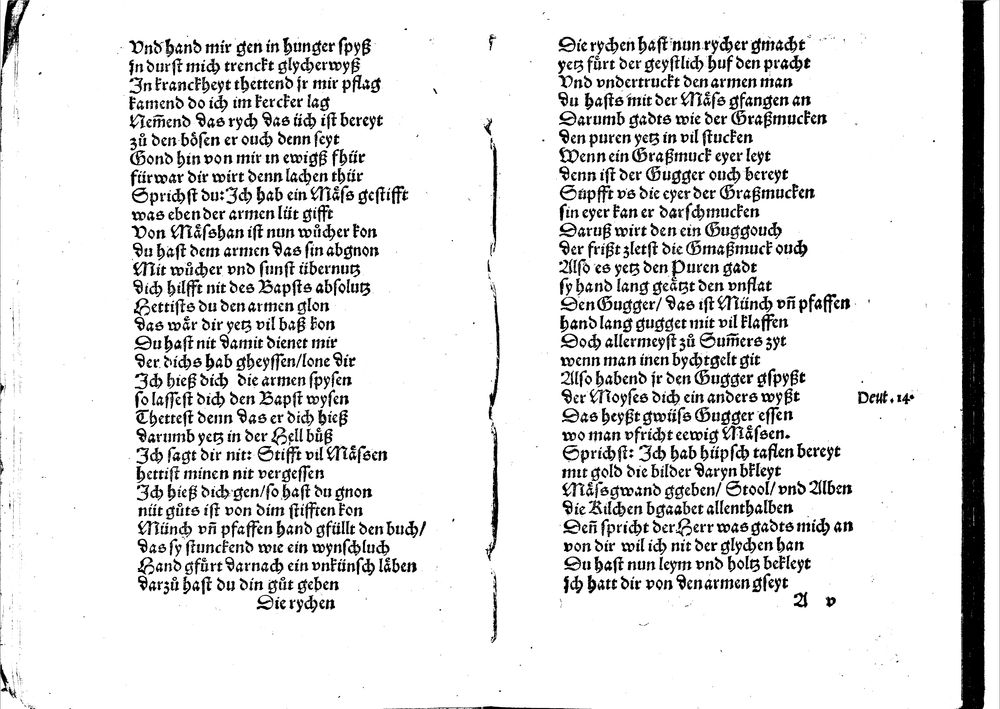 Vnd hand mir gen in hunger spyß
jn durst mich trenckt glycherwyß
Jn kranckheyt thettend jr mir pflag
kamend do ich im kercker lag
Nem̃end das rych das üch ist bereyt
zů den bösen er ouch denn seyt
Gond hin von mir in ewigß fhür
fürwar dir wirt denn lachen thür
Sprichst du: Ich hab ein Mäss gestifft
was eben der armen lüt gifft
Von Mässhan ist nun wůcher kon
du hast dem armen das sin abgnon
Mit wůcher vnd sunst übernutz
dich hilfft nit des Bapsts absolutz
Hettists du den armen glon
das wär dir yetz vil baß kon
Du hast nit damit dienet mir
der dichs hab gheyssen/lone dir
Ich hieß dich die armen spysen
so lassest dich den Bapst wysen
Thettest denn das er dich hieß
darumb yetz in der Hell büß
Ich sagt dir nit: Stifft vil Mässen
hettist minen nit vergessen
Ich hieß dich gen/so hast du gnon
nüt gůts ist von dim stifften kon
Münch vñ pfaffen hand gfüllt den buch/
das sy stunckend wie ein wynschluch
Hand gfürt darnach ein vnkünsch läben
darzů hast du din gůt geben
Die rychen
Die rychen hast nun rycher gmacht
yetz fůrt der geystlich huf den pracht
Vnd vndertruckt den armen man
du hasts mit der Mäss gfangen an
Darumb gadts wie der Graßmucken
den puren yetz in vil stucken
Wenn ein Graßmuck eyer leyt
denn ist der Gugger ouch bereyt
Süpfft vs die eyer der Graßmucken
sin eyer kan er dar schmucken
Daruß wirt den ein Guggouch
der frißt zletst die Gmaßmuck ouch
Also es yetz den Puren gadt
sy hand lang geätzt den vnflat
Den Gugger/ das ist Münch vñ pfaffen
hand lang gugget mit vil klaffen
Doch allermeyst zů Sum̃ers zyt
wenn man inen bychtgelt git
Also habend jr den Gugger gspyßt
der Moyses dich ein anders wyßt
Deut. 14.
Das heyßt gwüss Gugger essen
wo man vfricht eewig Mässen.
Sprichst: Ich hab hüpsch taflen bereyt
mit gold die bilder daryn bkleyt
Mässgwand ggeben/ Stool/ vnd Alben
die Kilchen bgaabet allenthalben
Deñ spricht der Herr was gadts mich an
von dir wil ich nit der glychen han
Du hast nun leym vnd holtz bekleyt
ich hatt dir von den armen gseyt
A v